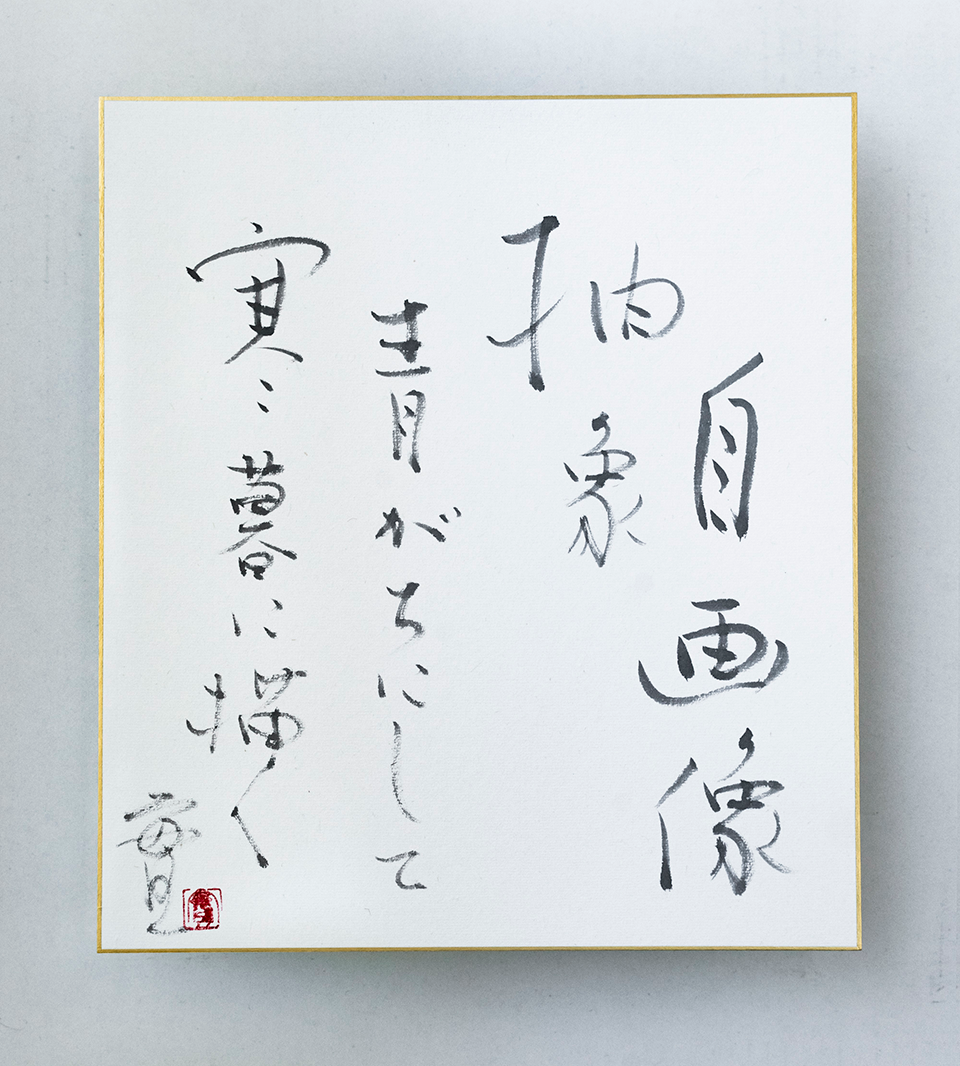 自画像
抽象
青がちにして
寒暮に描く